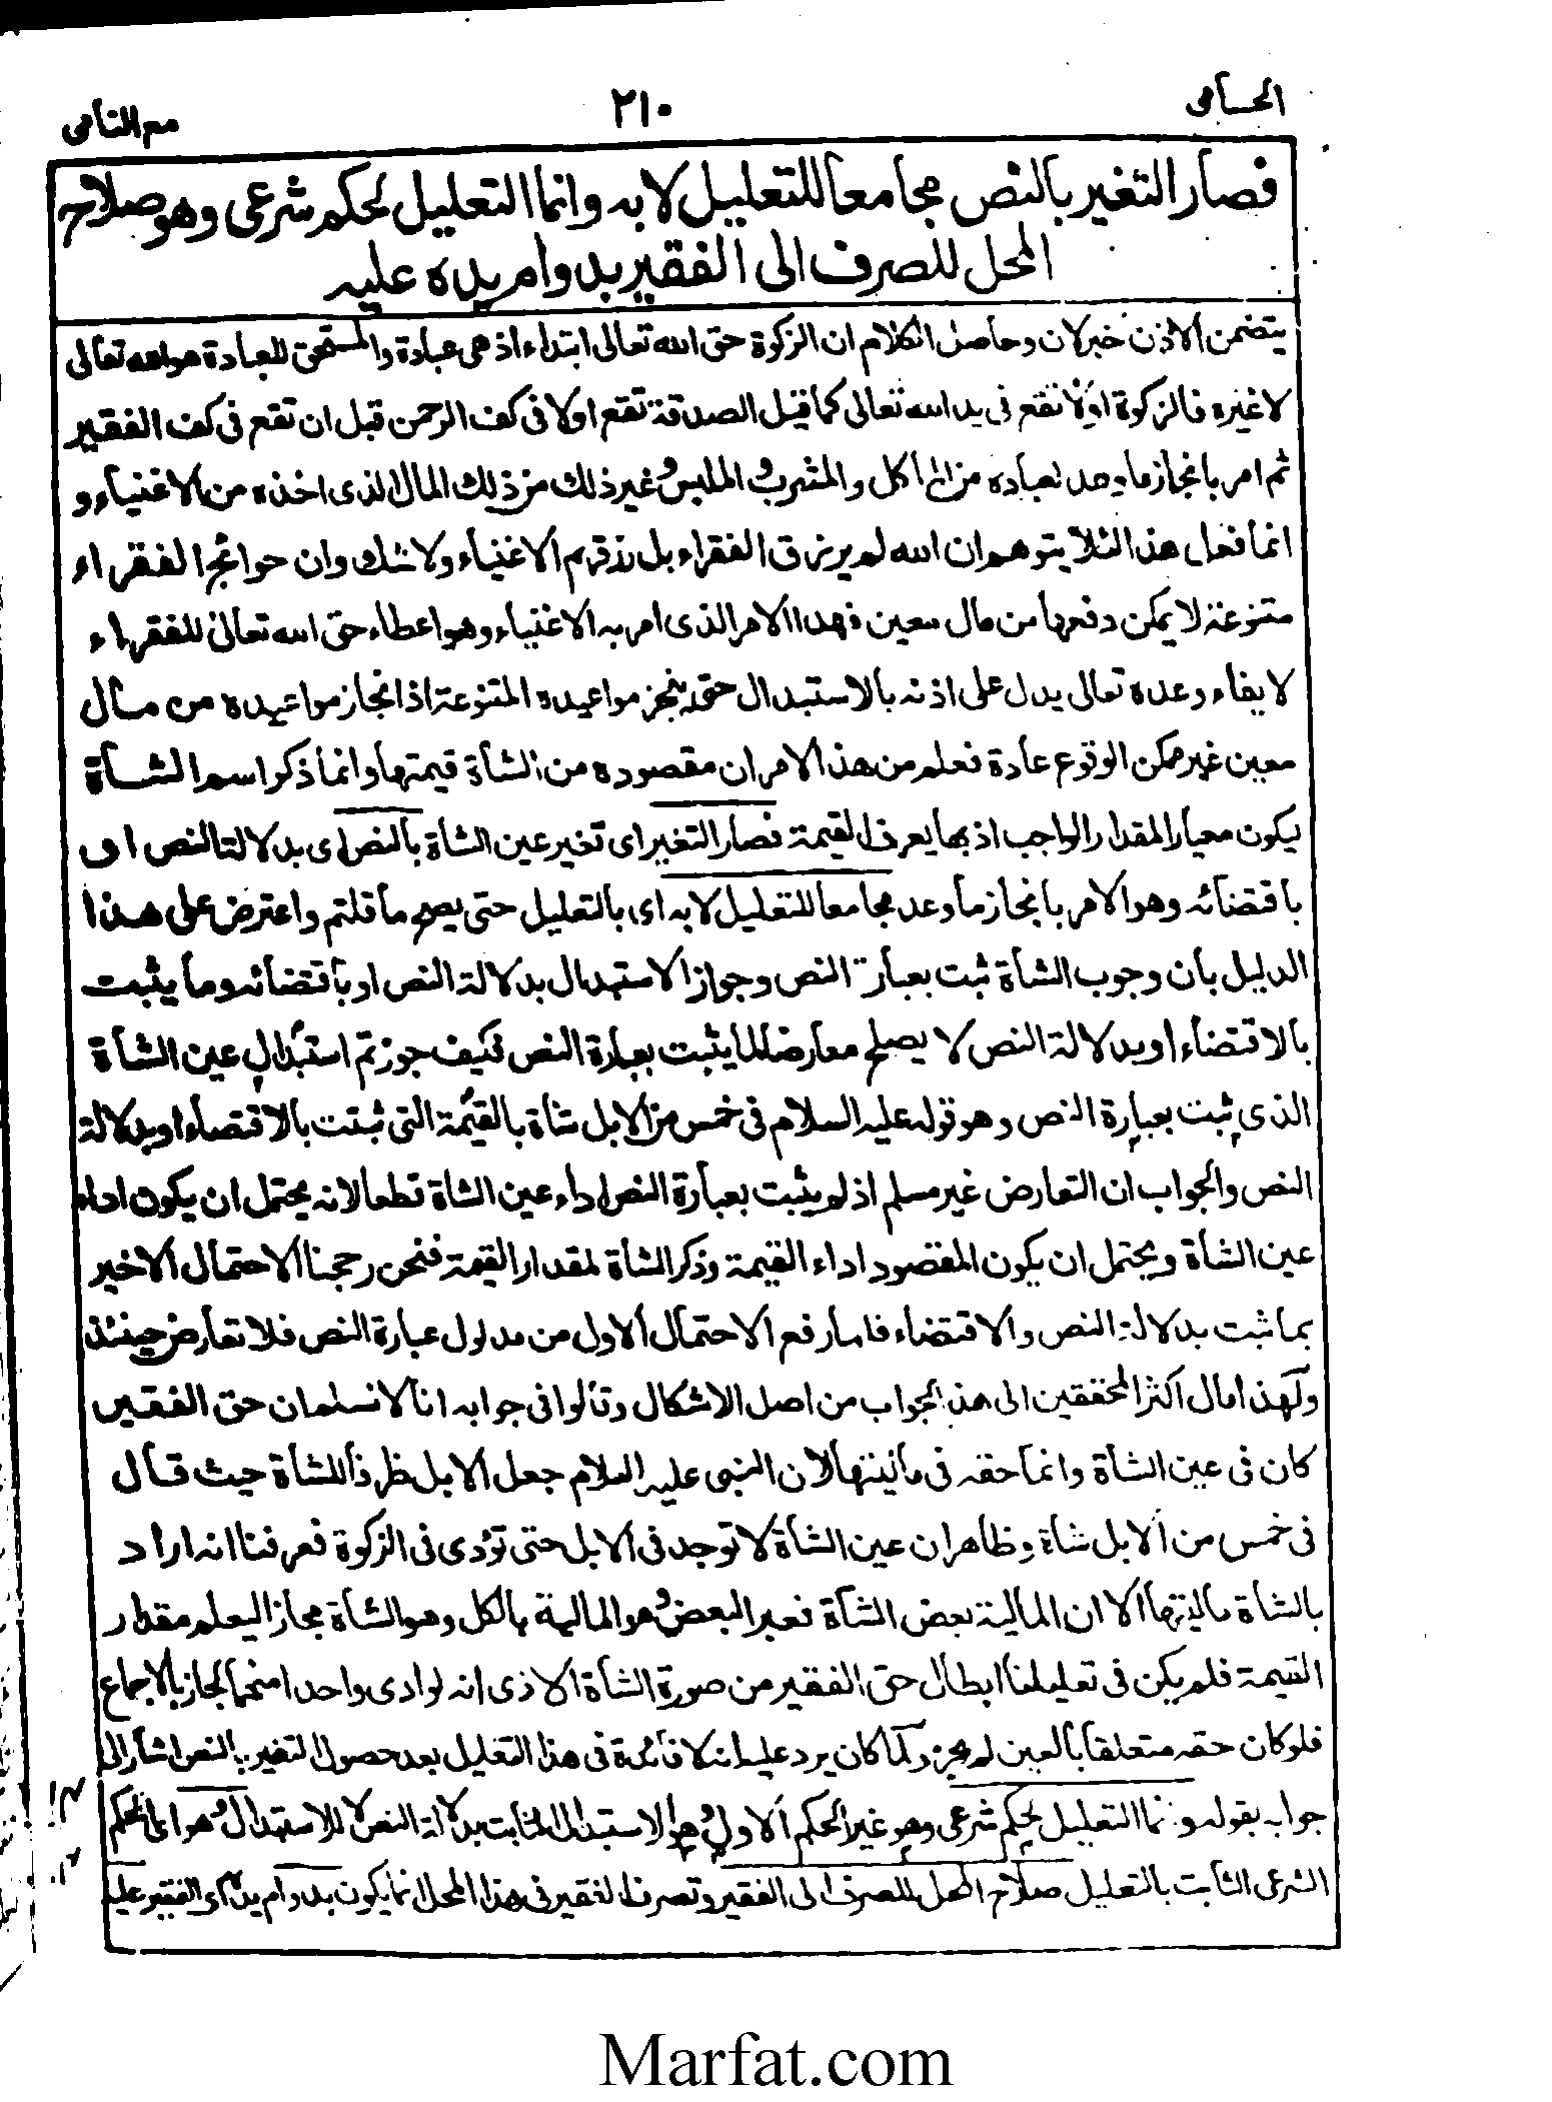 الحسامى
٢١٠
مع النامى
فصار التغير بالنص مجامعا للتعليل لا به وانما التعليل لحكم شرعى وهو صلاح
المحل للصرف الى الفقير بدوام يده عليه
يتضمن الاذن خبر لان وحاصل الكلام ان الزكوة حق الله تعالى ابتداء اذ هى عبادة والمستحق للعبادة هو الله تعالى
لا غيره فالزكوة اولا تقع فى يد الله تعالى كما قيل الصدقة تقع اولا فى كف الرحمن قبل ان تقع فى كف الفقير
ثم امر بانجاز ما وعد لعباده من الماكل والمشرب والملبس وغير ذلك من ذلك المال الذى اخذه من الاغنياء و
انما فعل هذا لئلا يتوهم ان الله لم يرزق الفقراء بل رزقهم الاغنياء ولا شك وان حوائج الفقراء
متنوعة لا يمكن دفعها من مال معين فهذا الامر الذى امر به الاغنياء وهو اعطاء حق الله تعالى للفقراء
لايفاء وعده تعالى يدل على اذنه بالاستبدال حتى ينجز مواعيده المتنوعة اذ انجاز مواعيده من مال
معين غير ممكن الوقوع عادة فعلم من هذا الامر ان مقصوده من الشاة قيمتها وانما ذكر اسم الشاة
ليكون معيار المقدار الواجب اذ بها يعرف القيمة فصار التغير اى تغير عين الشاة بالنص اى بدلالة النص او
باقتضائه وهو الامر بانجاز ما وعد مجامعا للتعليل لا به اى بالتعليل حتى يصح ما قلتم واعترض على هذا
الدليل بان وجوب الشاة ثبت بعبارة النص وجواز الاستبدال بدلالة النص او باقتضائه وما يثبت
بالاقتضاء او بدلالة النص لا يصلح معارضا لما يثبت بعبارة النص فكيف جوزتم استبدال عين الشاة
الذى ثبت بعبارة النص وهو قوله عليه السلام فى خمس من الابل شاة بالقيمة التى ثبتت بالاقتضاء او بدلالة
النص والجواب ان التعارض غير مسلم اذ لم يثبت بعبارة النص اداء عين الشاة قطعا لانه يحتمل ان يكون اداء
عين الشاة ويحتمل ان يكون المقصود اداء القيمة وذكر الشاة لمقدار القيمة فنحن رجحنا الاحتمال الاخير
بما ثبت بدلالة النص والاقتضاء فاما رفع الاحتمال الاول من مدلول عبارة النص فلا تعارض حينئذ
ولهذا مال اكثر المحققين الى هذا الجواب من اصل الاشكال وقالوا فى جوابه انا لا نسلم ان حق الفقير
كان فى عين الشاة وانما حقه فى ماليتها لان النبى عليه السلام جعل الابل ظرفا للشاة حيث قال
فى خمس من الابل شاة وظاهر ان عين الشاة لا توجد فى الابل حتى تؤدى فى الزكوة فعرفنا انه اراد
بالشاة ماليتها الا ان المالية بعض الشاة فعبر البعض وهو المالية بالكل وهو الشاة مجازا ليعلم مقدار
القيمة فلم يكن فى تعليلنا ابطال حق الفقير من صورة الشاة الا ذى انه لو ادى واحدا منها لجاز بالاجماع
فلو كان حقه متعلقا بالعين لم يجز ولما كان يرد عليه انه لا فائدة فى هذا التعليل بعد حصول التغير بالنص اشار الى
جوابه بقوله وانما التعليل لحكم شرعى وهو غير الحكم الاول وهو الاستبدال الثابت بدلالة النص لا للاستبدال وهو اى الحكم
الشرعى الثابت بالتعليل صلاح المحل للصرف الى الفقير وتصرف الفقير فى هذا المحل انما يكون بدوام يده اى الفقير عليه
Marfat.com